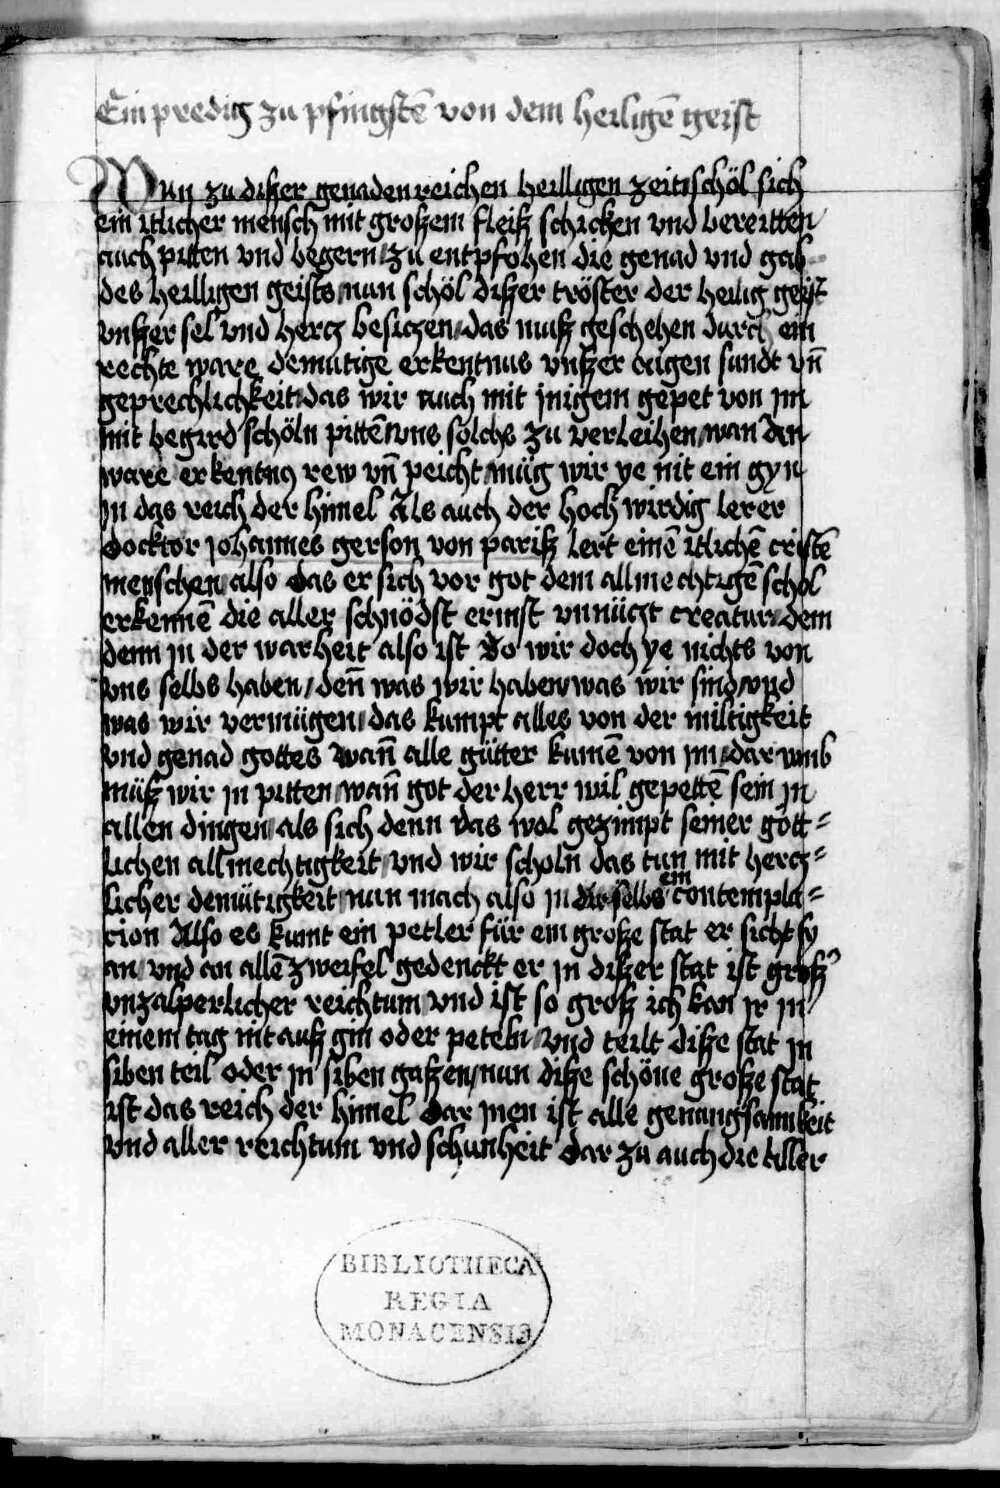 Ein predig zu pfingstē von dem heiligē geist
Nun zu diszer genadenreichen heilligen zeit schöl sich
ein itlicher mensch mit groszem fleisz schicken vnd bereitten
auch pitten vnd begern / zu entpfohen die genad vnd gab
des heilligen geists / nun schöl diszer tröster der heilig geist
vnszer sel vnd hercz besiczen / das musz geschehen durch ein
rechte ware demutige erkentnus vnszer aigen sundt vn̄
geprechlichkeit / das wir auch mit jnigem gepet von jm
mit begird schöln pittē vns solchs zu verleihen / wan an
ware erkentnus rew vn̄ peicht / müg wir ye nit ein gyn
jn das reich der himel Als auch der hoch wirdig lerer
docktor johannes gerson von parisz lert einē itlichē cristē
menschen also das er sich vor got dem allmechtigē schol
erkennē die aller schnödst ermst vnnüczt creatur / dem
denn jn der warheit also ist So wir doch ye nichts von
vns selbs haben / den̄ was wir haben / was wir sind / vnd
was wir vermügen / das kumpt alles von der miltigkeit
vnd genad gottes wan̄ alle gütter kumē von jm / dar vmb
müsz wir jn pitten / wan̄ got der herr wil gepettē sein jn
allen dingen / als sich denn das wol gezimpt seiner gött=
lichen allmechtigkeit / vnd wir scholn das tun mit hercz=
licher demütigkeit / nun mach also jn dir selbs ein contempla=
cion Also es kumt ein petler für ein grosze stat er sicht sy
an / vnd an allē zweifel gedenckt er jn diszer stat ist grosz'
vnzalperlicher reichtum / vnd ist so grosz ich kan jr jn
einem tag nit ausz gin oder peteln / vnd teilt disze stat jn
siben teil oder jn siben gaszen / nun disze schöne grosze stat
ist das reich der himel dar jnen ist alle genungsamkeit
vnd aller reichtum vnd schunheit dar zu auch die aller
BIBLIOTHECA
REGIA
MONACENSIS